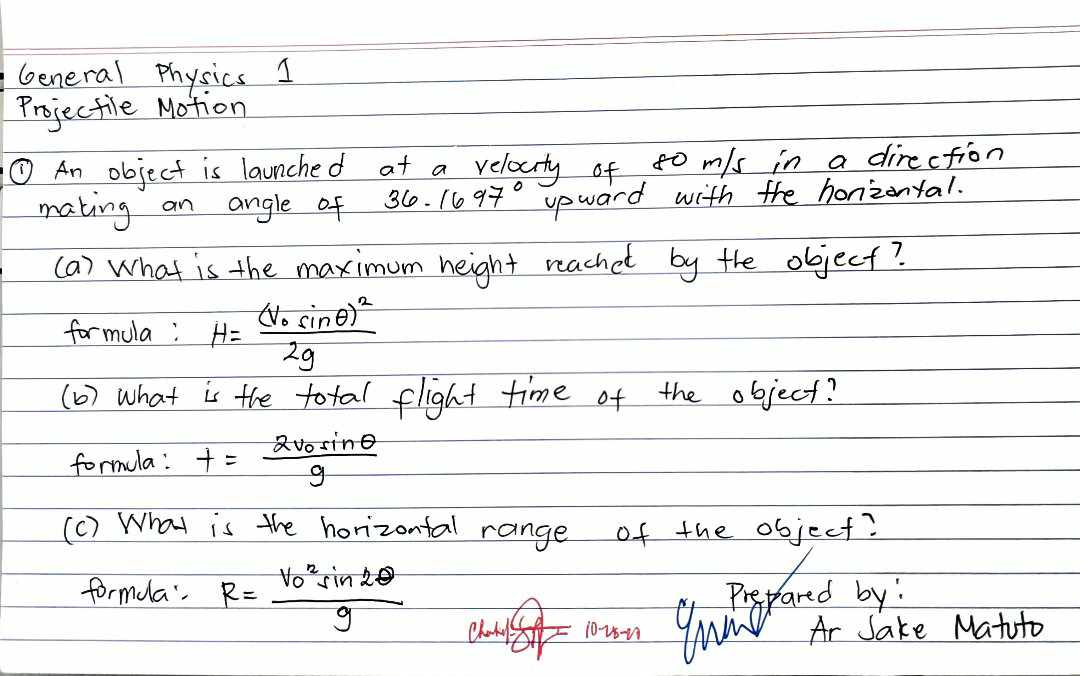 General Physics 1
Projectile Motion
① An object is launched at a velocity of 80 m/s in a direction
making an angle of 36.1697° upward with the horizontal.
(a) What is the maximum height reached by the object?
formula : H= (V₀ sinθ)² / 2g
(b) What is the total flight time of the object?
formula : t = 2v₀ sinθ / g
(c) What is the horizontal range of the object?
formula : R= V₀² sin 2θ / g
Prepared by:
Ar Jake Matuto